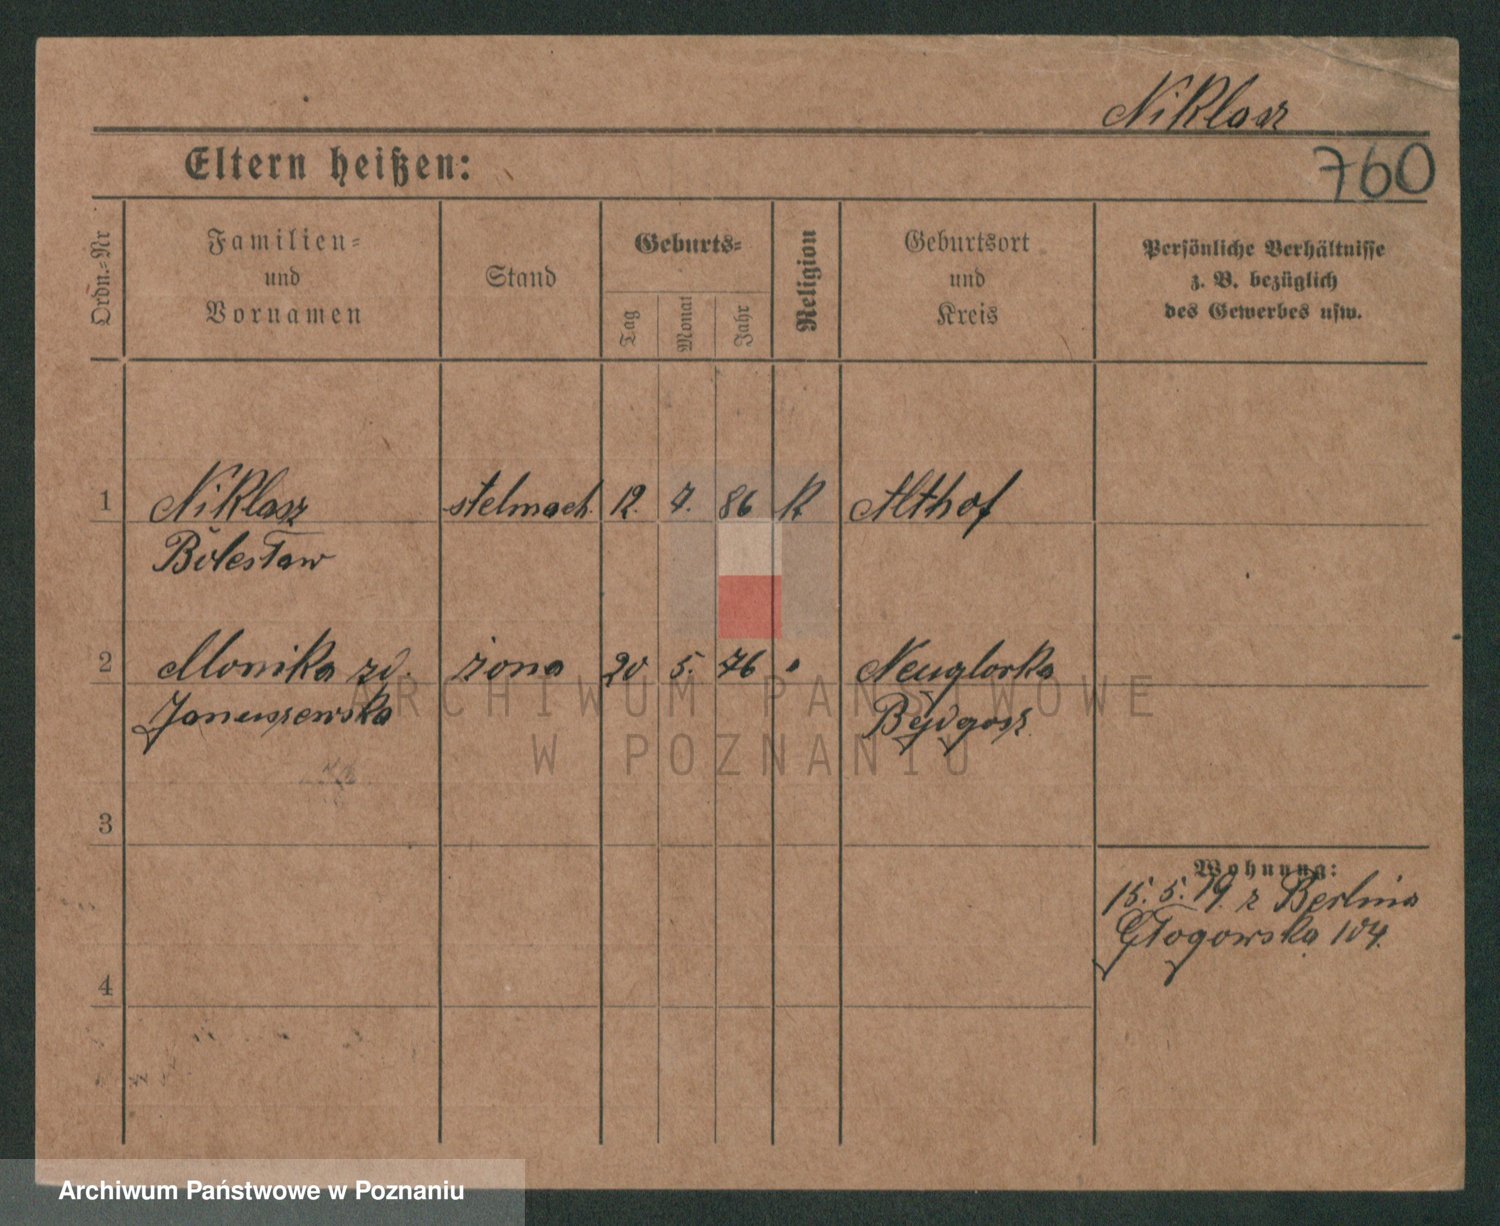 Niklasz
Eltern heißen:
760
Ordn.-Nr
Familien-
und
Vornamen
Stand
Geburts-
Tag
Monat
Jahr
Religion
Geburtsort
und
Kreis
Persönliche Verhältnisse
z. B. bezüglich
des Gewerbes usw.
1 Niklasz stelmach. 12. 7. 86 K Althof
Bolesław
2 Monika zd. żona 20 5. 76 Neuglorka
Januszewska Bydgosz.
3
Wohnung:
15. 5. 19. z Berlina
Głogowska 104.
4
ARCHIWUM PAŃSTWOWE
W POZNANIU
Archiwum Państwowe w Poznaniu